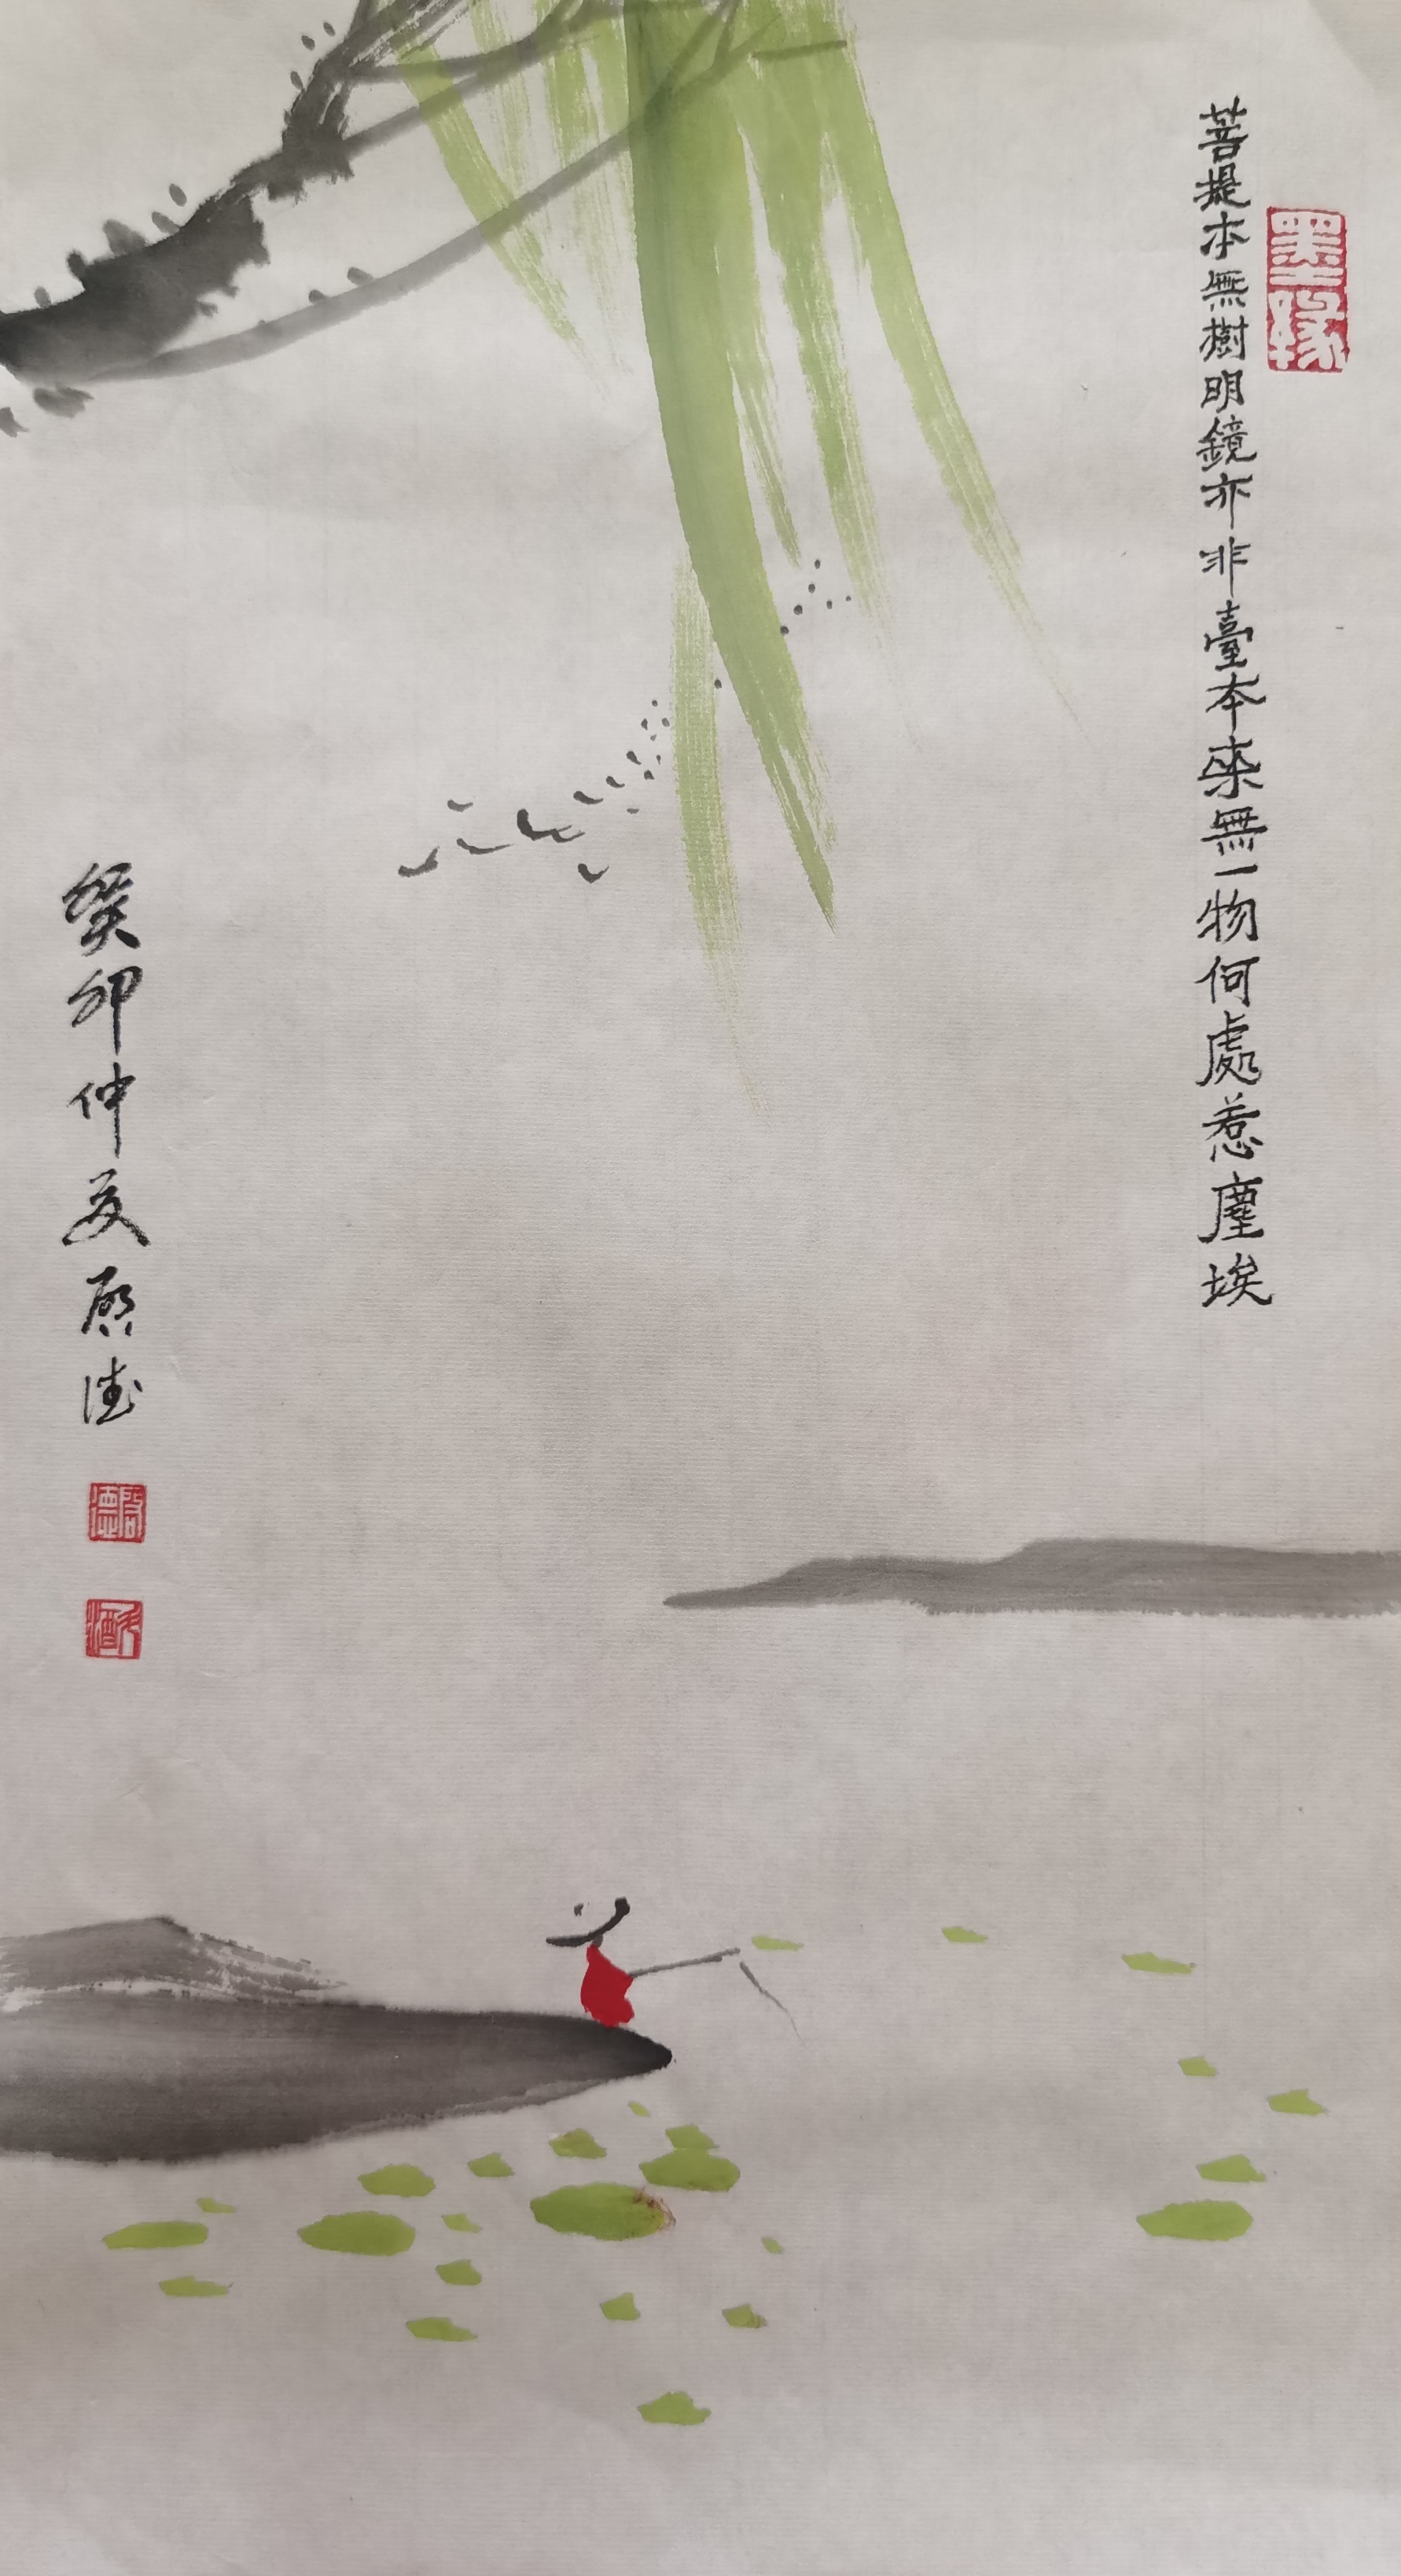 菩提本無樹明鏡亦非臺本來無一物何處惹塵埃
墨緣
癸卯仲夏啟德
啟德